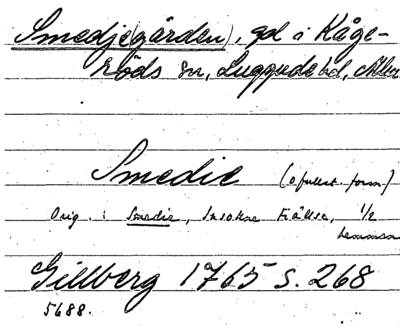 Smedje(gården), gd i Kåge-
röds sn, Luggude hd, Mlm
Smedie (ofullst. form)
Orig. : Smedie, Sasokne Fiällse, 1/2
hemman
Gillberg 1765 s. 268
5688.